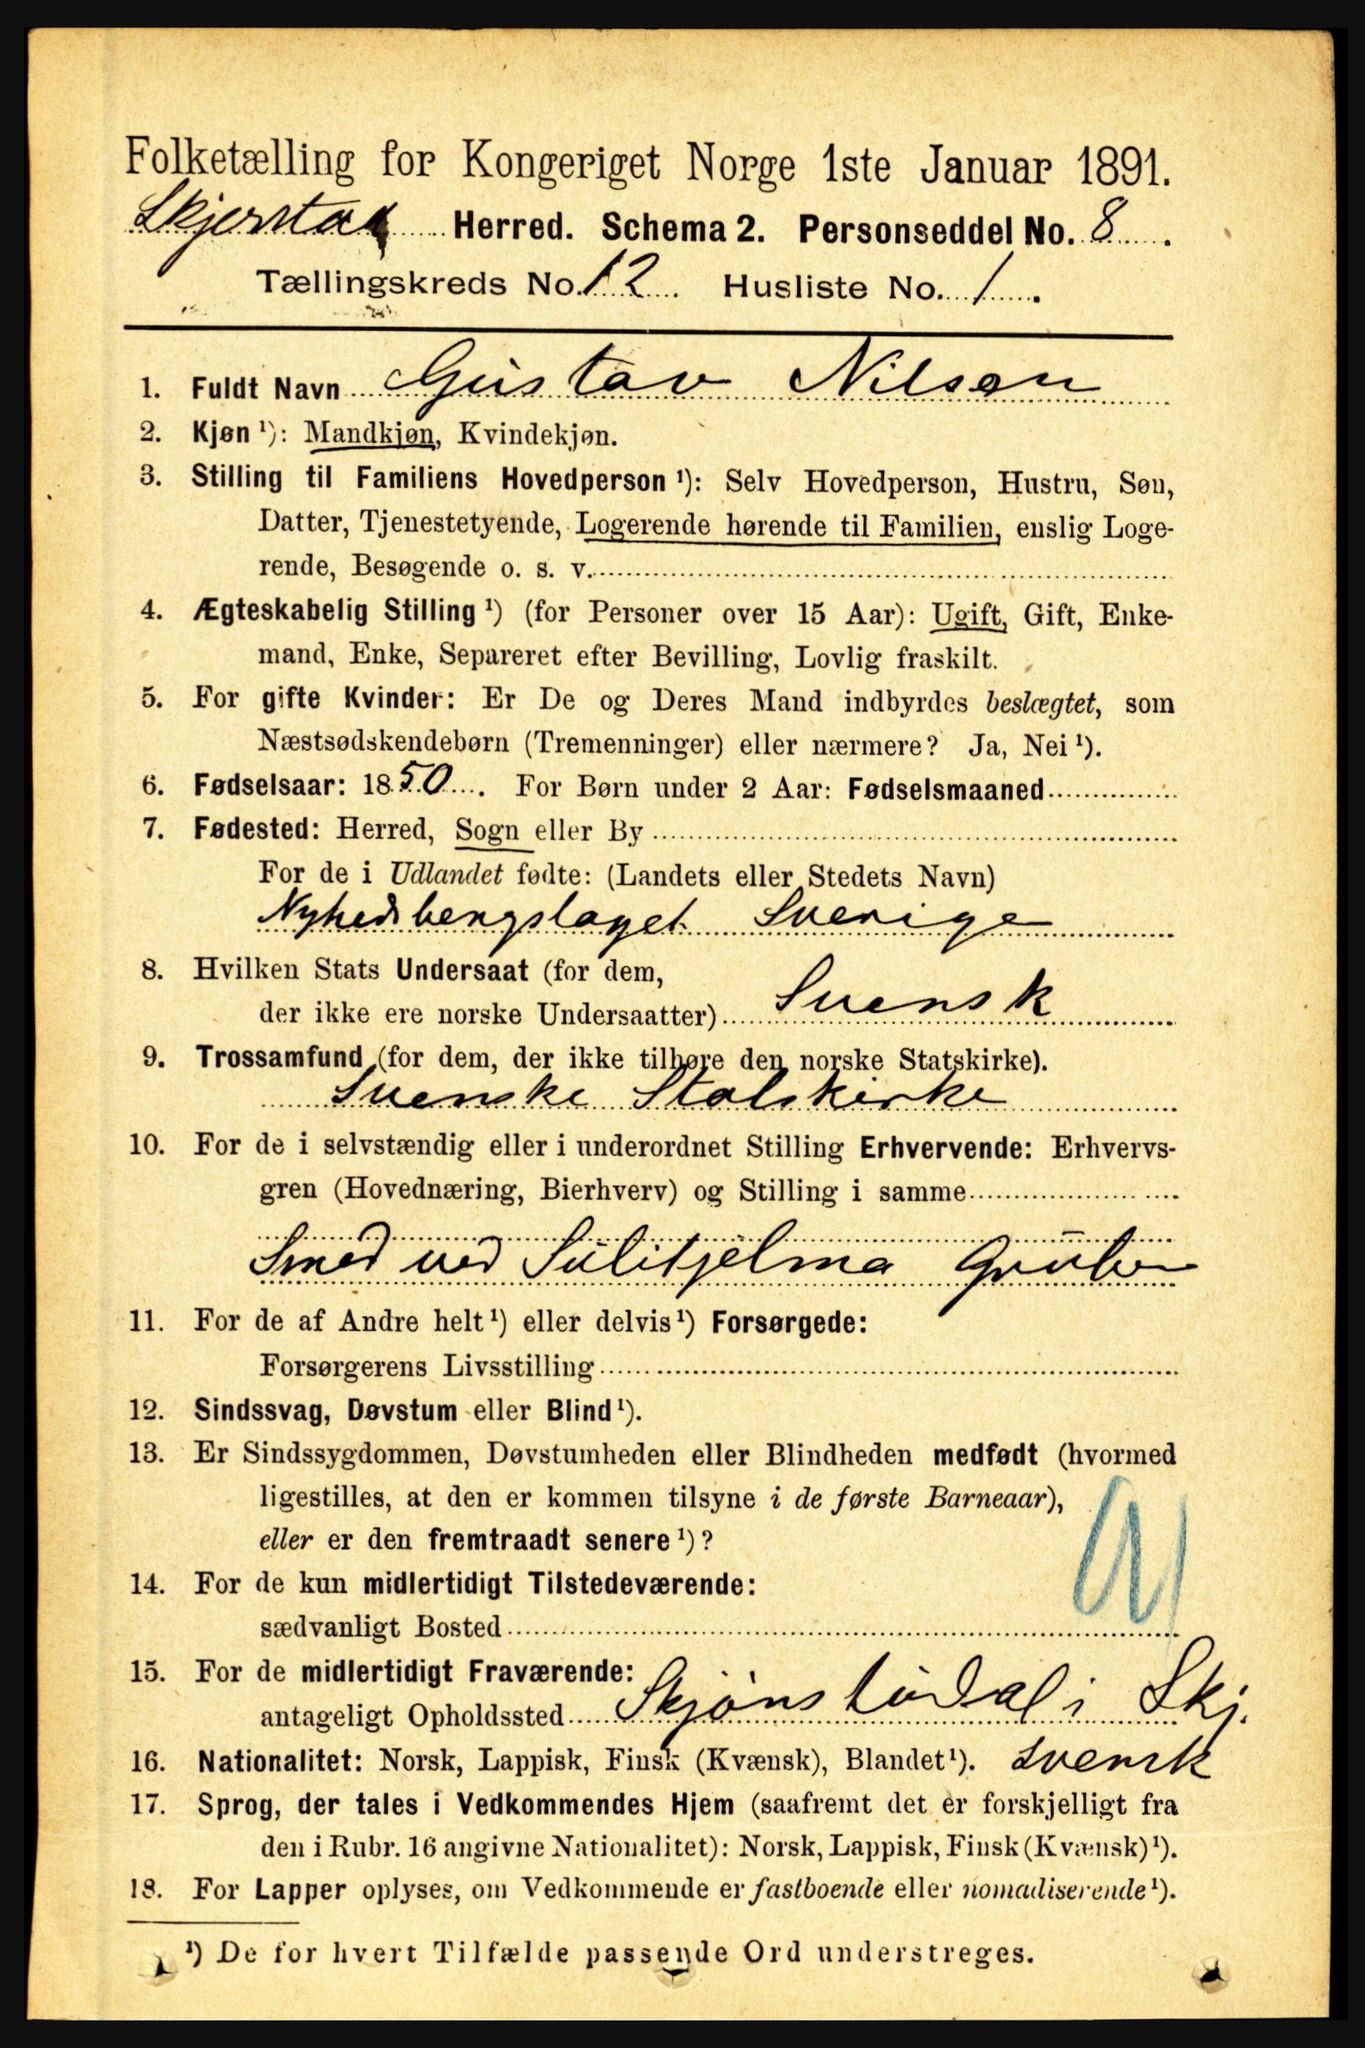 Folketælling for Kongeriget Norge 1ste Januar 1891.
Skjerstad Herred. Schema 2. Personseddel No. 8.
Tællingskreds No. 12. Husliste No. 1.
1. Fuldt Navn Gustav Nilsen
2. Kjøn ¹): Mandkjøn, Kvindekjøn.
3. Stilling til Familiens Hovedperson ¹): Selv Hovedperson, Hustru, Søn,
Datter, Tjenestetyende, Logerende hørende til Familien, enslig Loge-
rende, Besøgende o. s. v.
4. Ægteskabelig Stilling ¹) (for Personer over 15 Aar): Ugift, Gift, Enke-
mand, Enke, Separeret efter Bevilling, Lovlig fraskilt.
5. For gifte Kvinder: Er De og Deres Mand indbyrdes beslægtet, som
Næstsødskendebørn (Tremenninger) eller nærmere? Ja, Nei ¹).
6. Fødselsaar: 1850. For Børn under 2 Aar: Fødselsmaaned
7. Fødested: Herred, Sogn eller By
For de i Udlandet fødte: (Landets eller Stedets Navn)
Nyhedsbergslaget Sverige
8. Hvilken Stats Undersaat (for dem,
der ikke ere norske Undersaatter) Svensk
9. Trossamfund (for dem, der ikke tilhøre den norske Statskirke).
Svenske Statskirke
10. For de i selvstændig eller i underordnet Stilling Erhvervende: Erhvervs-
gren (Hovednæring, Bierhverv) og Stilling i samme
Smed ved Sulitjelma Gruber
11. For de af Andre helt ¹) eller delvis ¹) Forsørgede:
Forsørgerens Livsstilling
12. Sindssvag, Døvstum eller Blind ¹).
13. Er Sindssygdommen, Døvstumheden eller Blindheden medfødt (hvormed
ligestilles, at den er kommen tilsyne i de første Barneaar),
eller er den fremtraadt senere ¹)?
14. For de kun midlertidigt Tilstedeværende:
sædvanligt Bosted
15. For de midlertidigt Fraværende:
antageligt Opholdssted Skjønstudal i Skj.
16. Nationalitet: Norsk, Lappisk, Finsk (Kvænsk), Blandet ¹). Svensk
17. Sprog, der tales i Vedkommendes Hjem (saafremt det er forskjelligt fra
den i Rubr. 16 angivne Nationalitet): Norsk, Lappisk, Finsk (Kvænsk) ¹).
18. For Lapper oplyses, om Vedkommende er fastboende eller nomadiserende ¹).
¹) De for hvert Tilfælde passende Ord understreges.